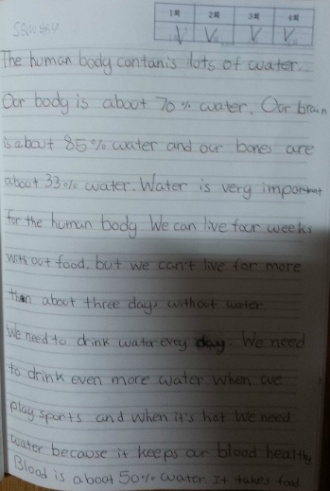 1회 2회 3회 4회
The human body contanis lots of water.
Our body is about 70% water. Our brain
is about 85% water and our bones are
about 33% water. Water is very important
for the human body. We can live four weeks
without food, but we can't live for more
than about three days without water.
We need to drink water every day. We need
to drink even more water when we
play sports and when it's hot. We need
water because it keeps our blood healthy
Blood is about 50% water. It takes food